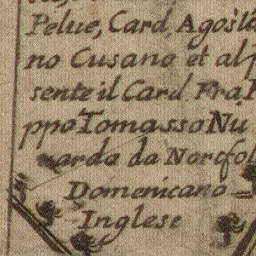 Pelue, Card. Agosti
no Cusano et al p
sente il Card. Fra. F
ppo Tomasso Nu
arda da Norfol
Domenicano
Inglese